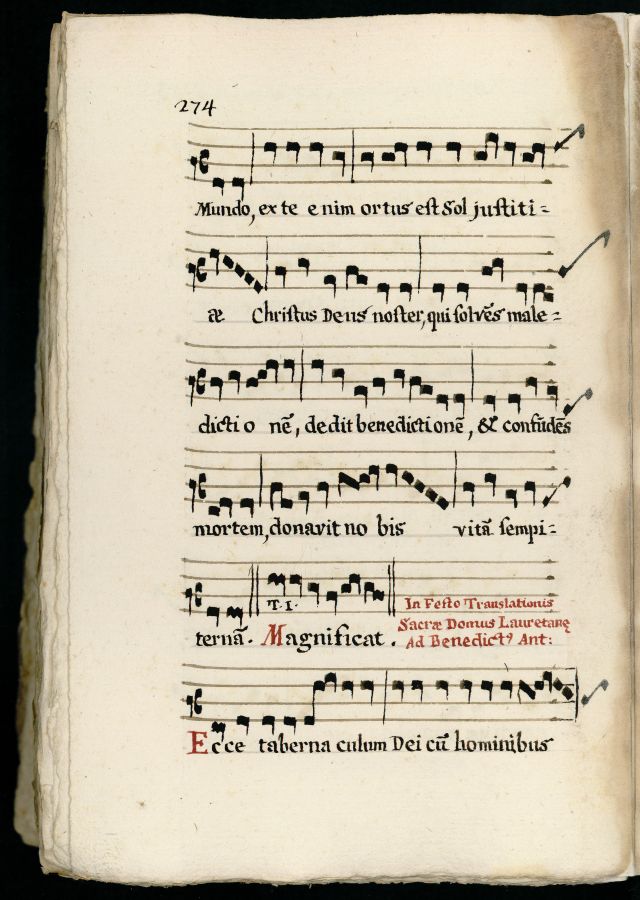 274
Mundo, ex te enim ortus est Sol justiti=
æ Christus Deus noster, qui solvēs male=
dictio nē, dedit benedictionē, & confūdēs
mortem, donavit no bis vitā sempi=
ternā. T. I. Magnificat.
In Festo Translationis
Sacræ Domus Lauretanę
Ad Benedictꝰ Ant:
Ecce taberna culum Dei cū hominibus